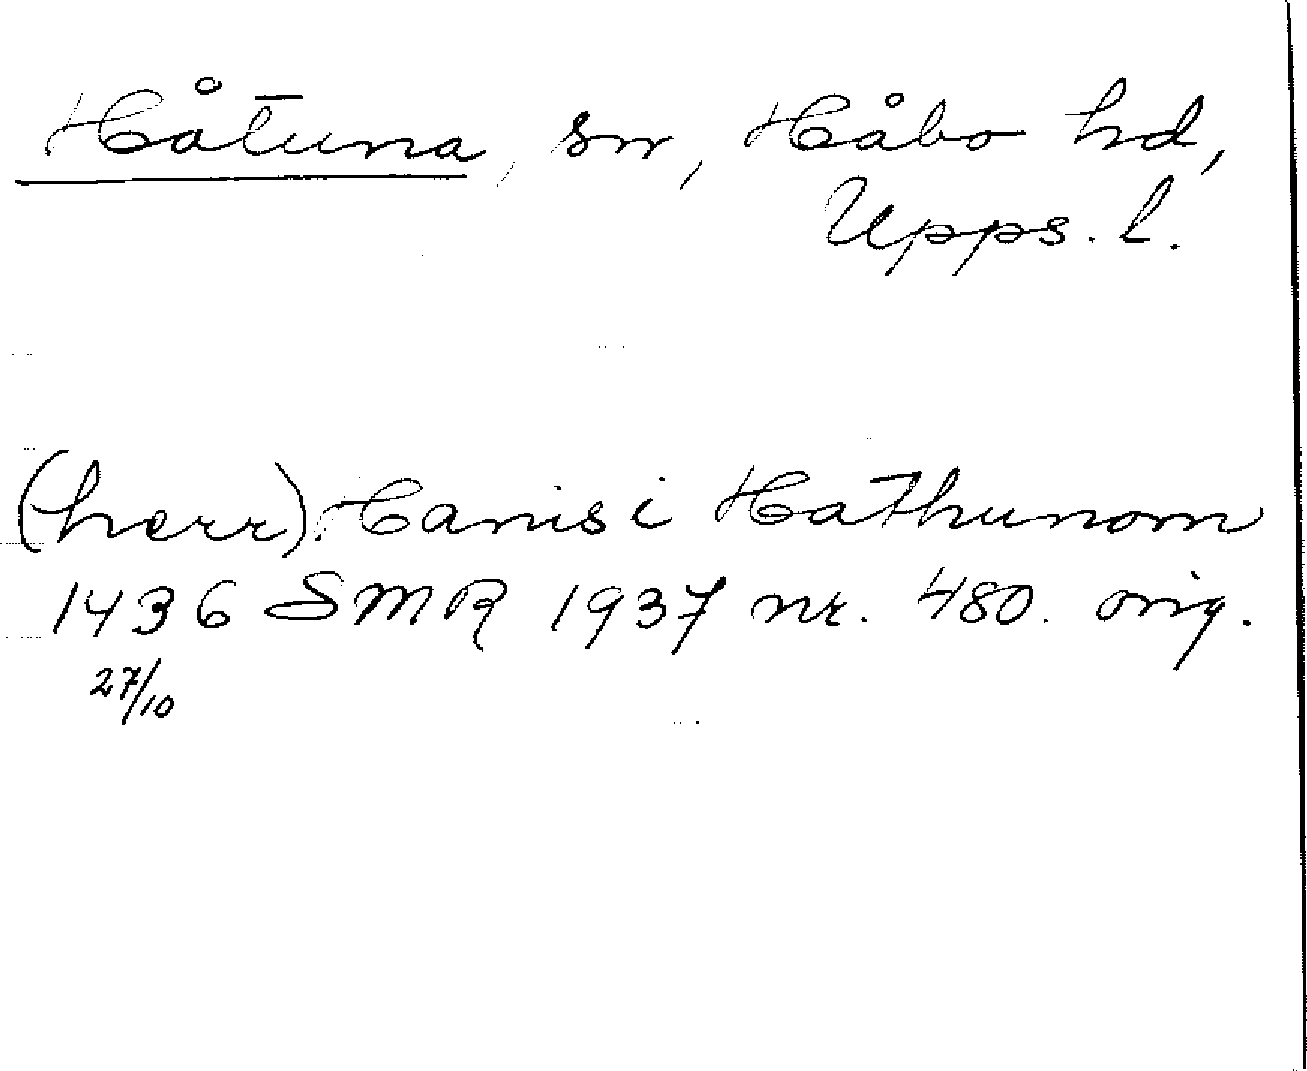 Håtuna, sn, Håbo hd,
Upps. l.
(herr) Hanis i Hathunom
1436 SMR 1937 nr. 480. orig.
27/10